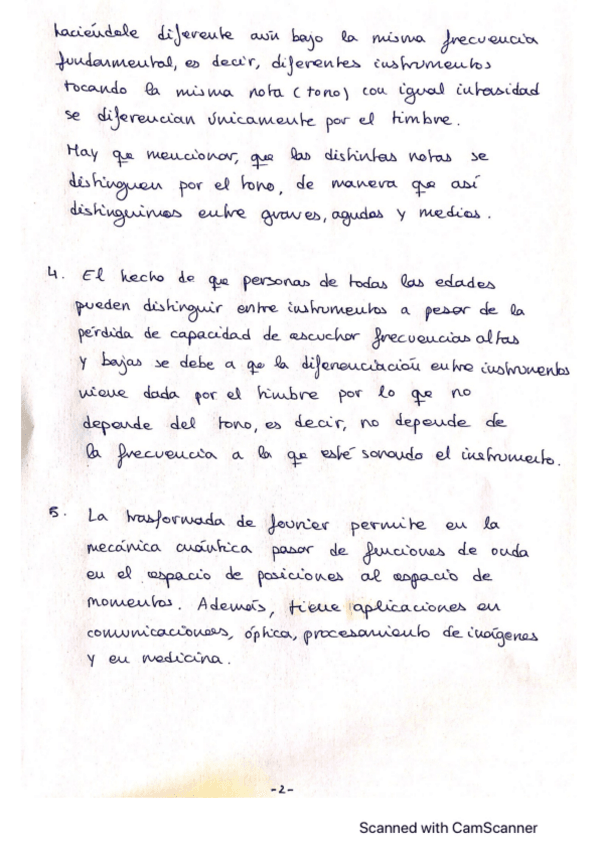 haciéndole diferente aún bajo la misma frecuencia
fundamental, es decir, diferentes instrumentos
tocando la misma nota (tono) con igual intensidad
se diferencian únicamente por el timbre.
Hay que mencionar, que las distintas notas se
distinguen por el tono, de manera que así
distinguimos entre graves, agudas y medios.
4. El hecho de que personas de todas las edades
pueden distinguir entre instrumentos a pesar de la
pérdida de capacidad de escuchar frecuencias altas
y bajas se debe a que la diferenciación entre instrumentos
viene dada por el timbre por lo que no
depende del tono, es decir, no depende de
la frecuencia a la que esté sonando el instrumento.
5. La trasformada de fourier permite en la
mecánica cuántica pasar de funciones de onda
en el espacio de posiciones al espacio de
momentos. Además, tiene aplicaciones en
comunicaciones, óptica, procesamiento de imágenes
y en medicina.
-2-
Scanned with CamScanner